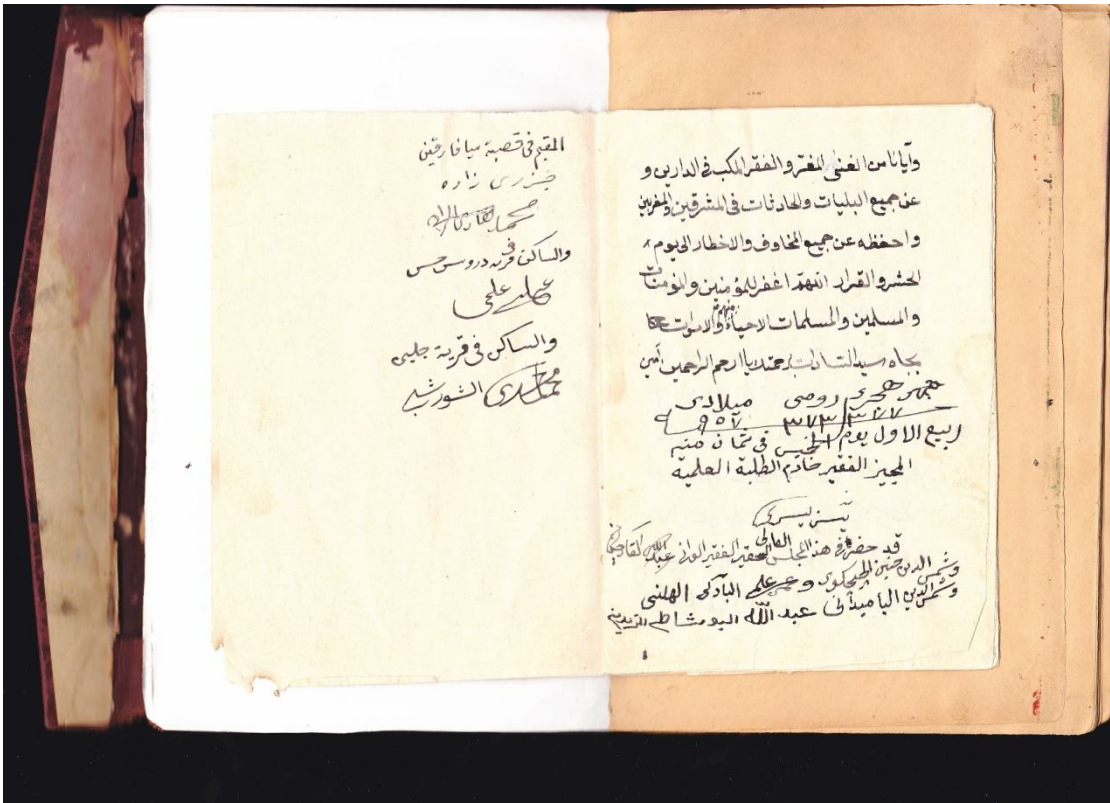 وآيانا من الغنى المغتر والفقر المكب في الدارين و
عن جميع البليات والحادثات في المشرقين والمغربين
واحفظه عن جميع المخاوف والاخطار الى يوم
الحشر والقرار اللهم اغفر للمؤمنين والمؤمنات
والمسلمين والمسلمات الاحياء منهم والاموات
بجاه سيد السادات برحمتك يا ارحم الراحمين آمين
هجرى رومى ميلادى
٣٧٧ ٣٧٣ ٩٥٧
ربيع الاول يوم الخميس في ثمان منه
المجيز الفقير خادم الطلبة العلمية
قد حضر في هذا المجلس العالى الحقير الفقير الوانى عبد الله
وشمس الدين حنين وعمر علمى البادكى الهلنى
وشمس الدين الباميدنى عبد الله
المقيم في قصبة ميافارقين
جزرى زاده
محمد
والساكن في قرية دروس حس
علمى
والساكن في قرية جلبى